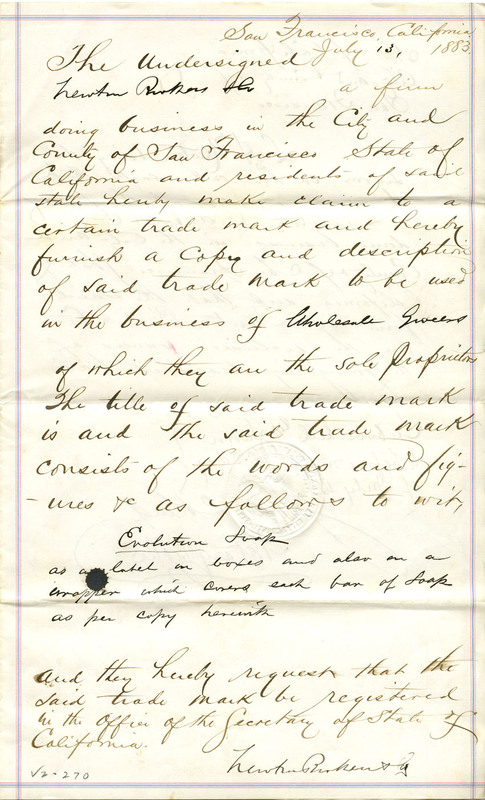 San Francisco, California
July 13, 1883
The Undersigned
Newton Brothers & Co a firm
doing business in the City and
County of San Francisco State of
California and residents of said
state hereby make claim to a
certain trade mark and hereby
furnish a Copy and description
of said trade mark to be used
in the business of Wholesale Grocers
of which they are the sole Proprietors
The title of said trade mark
is and the said trade mark
consists of the words and fig-
-ures &c as follows to wit,
Evolution Soap
as a label on boxes and also on a
wrapper which covers each bar of Soap
as per copy herewith
And they hereby request that the
said trade mark be registered
in the Office of the Secretary of State of
California.
Newton Brothers & Co
V2-270